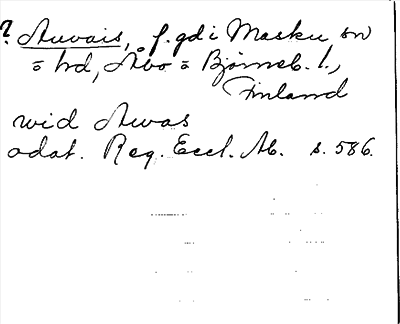 ? Auvais, f. gd i Masku sn
= hd, Åbo = Björneb. l.,
Finland
wid Awas
odat. Reg. Eccl. Ab. s. 586.